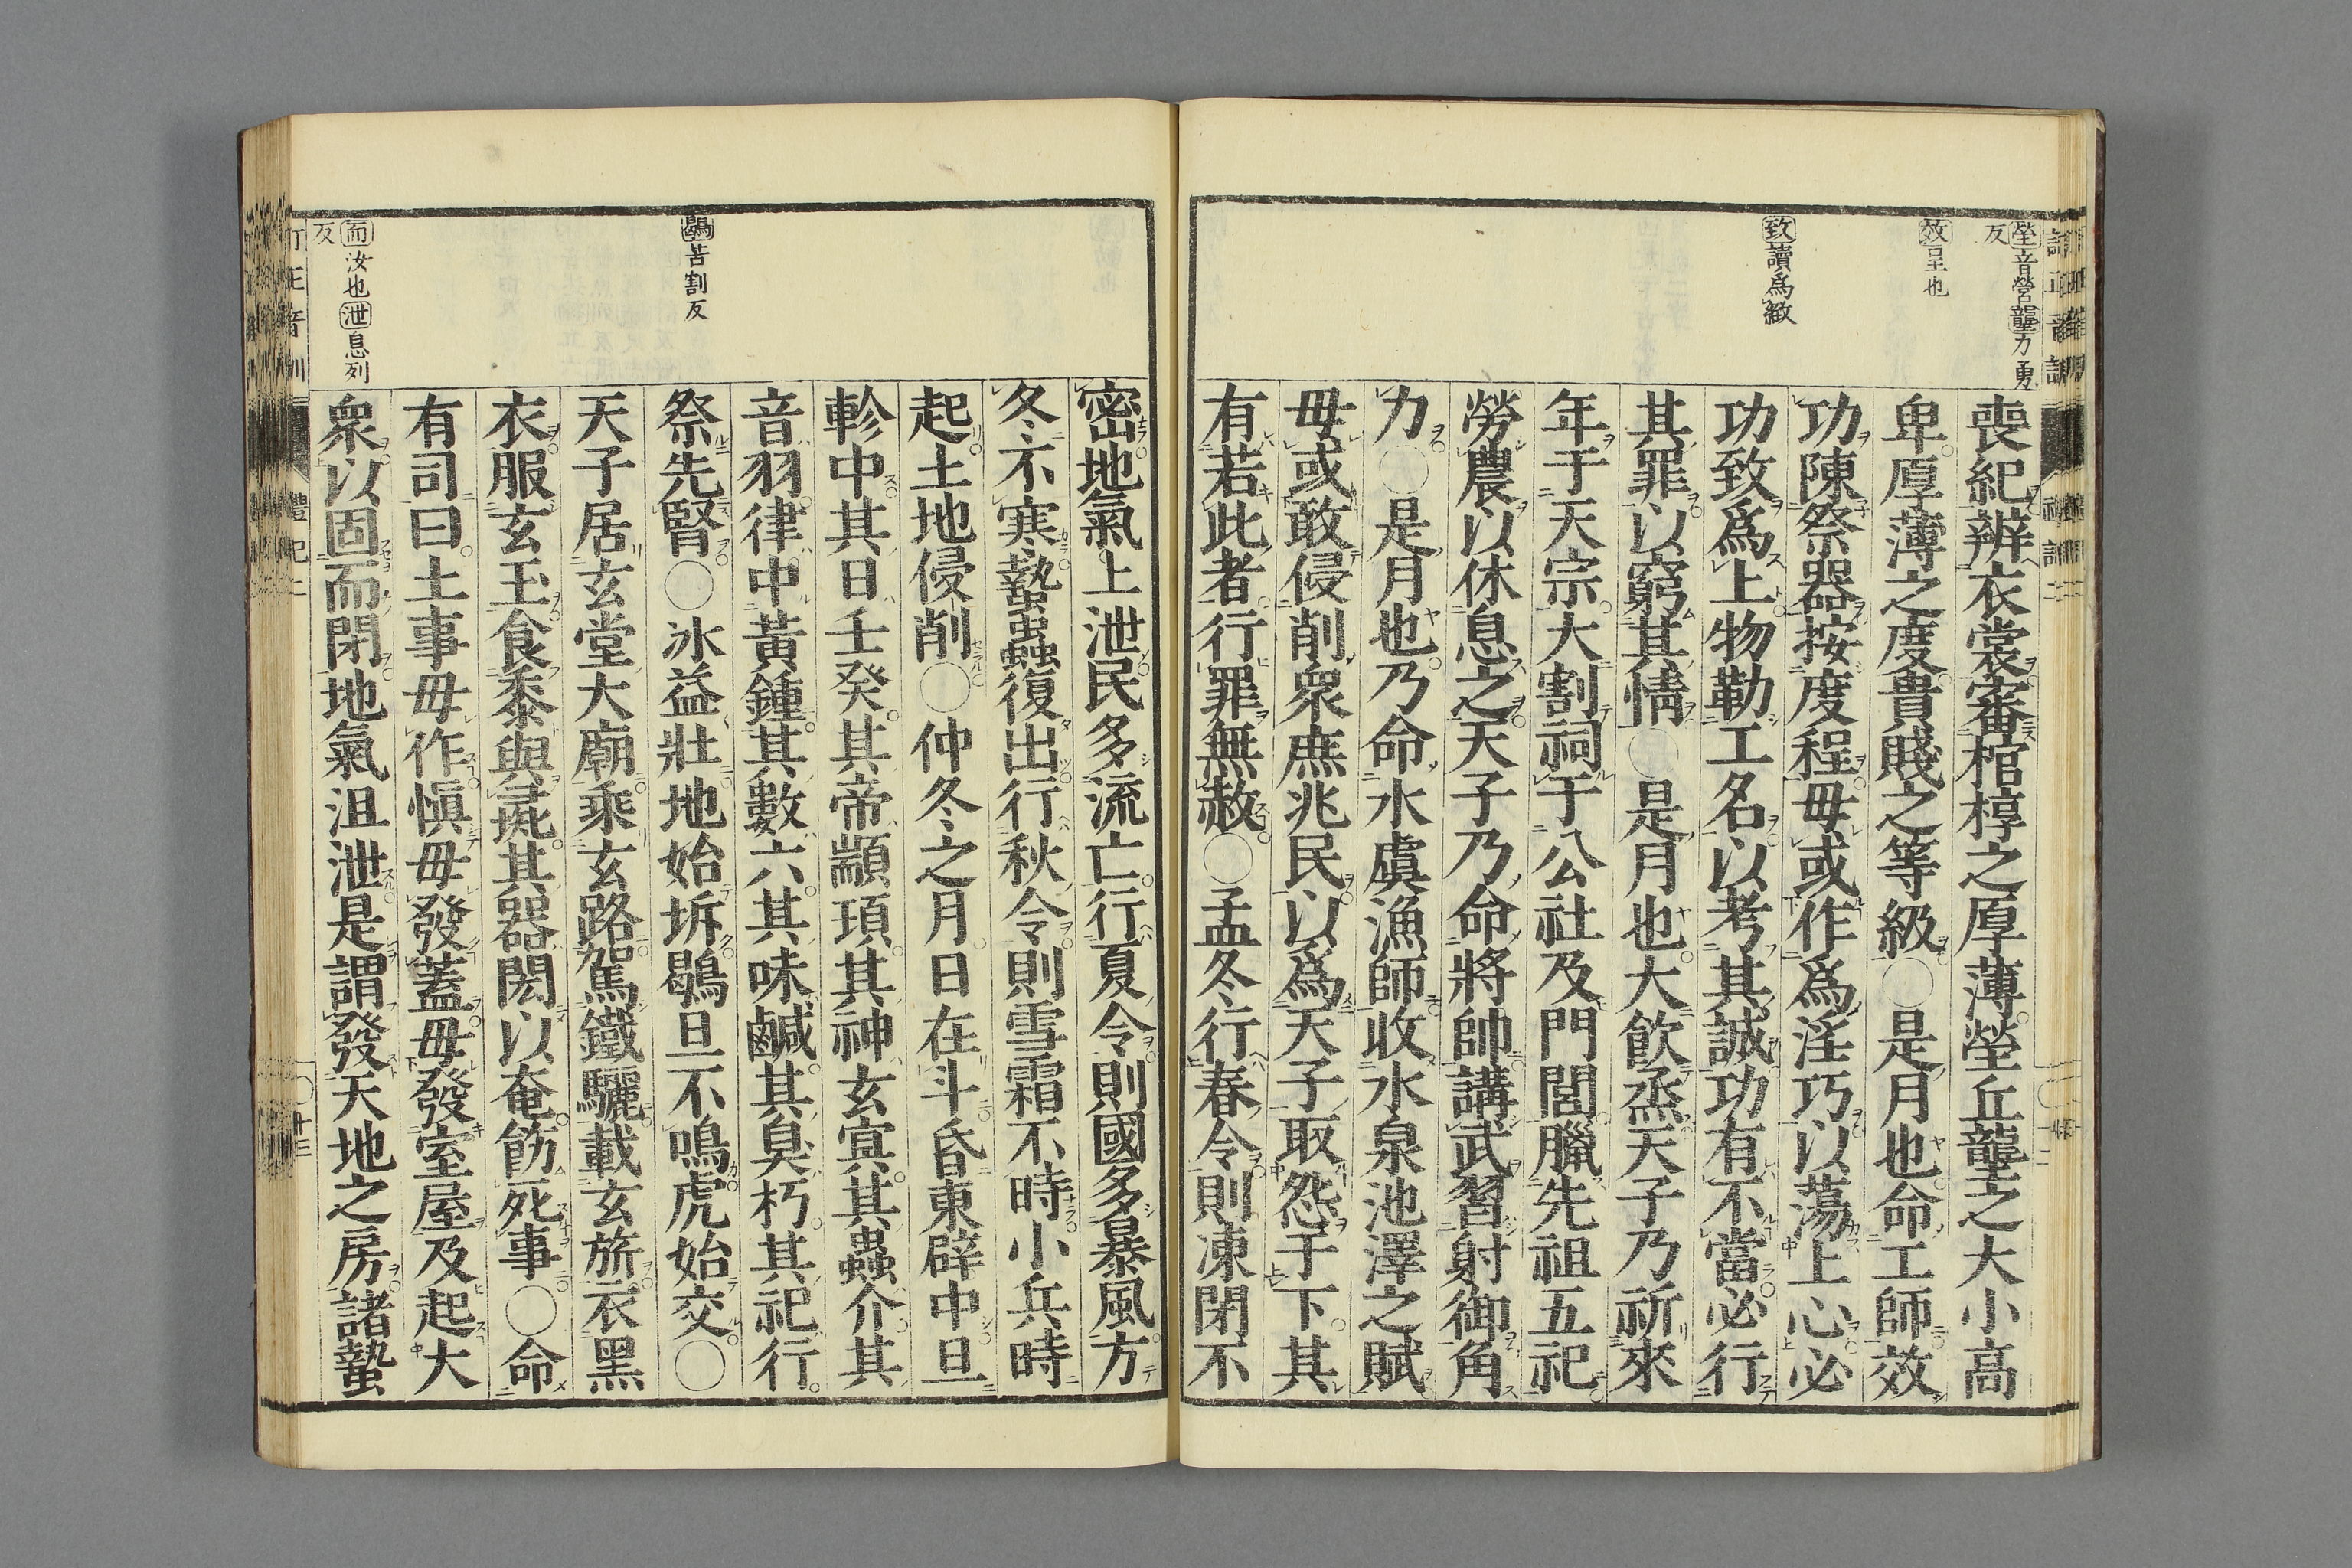 塋音營壟力勇
反
效呈也
致讀爲緻
喪紀辨衣裳審棺椁之厚薄塋丘壟之大小高
卑厚薄之度貴賤之等級○是月也命工師效
功陳祭器按度程毋或作爲淫巧以蕩上心必
功致爲上物勒工名以考其誠功有不當必行
其罪以窮其情○是月也大飮烝天子乃祈來
年于天宗大割祠于公社及門閭臘先祖五祀
勞農以休息之天子乃命將帥講武習射御角
力○是月也乃命水虞漁師收水泉池澤之賦
毋或敢侵削衆庶兆民以爲天子取怨于下其
有若此者行罪無赦○孟冬行春令則凍閉不
鶡苦割反
而汝也泄息列
反
密地氣上泄民多流亡行夏令則國多暴風方
冬不寒蟄蟲復出行秋令則雪霜不時小兵時
起土地侵削○仲冬之月日在斗昏東辟中旦
軫中其日壬癸其帝顓頊其神玄冥其蟲介其
音羽律中黃鍾其數六其味鹹其臭朽其祀行
祭先腎○冰益壯地始坼鶡旦不鳴虎始交○
天子居玄堂大廟乘玄路駕鐵驪載玄旂衣黑
衣服玄玉食黍與彘其器閎以奄飭死事○命
有司曰土事毋作愼毋發蓋毋發室屋及起大
衆以固而閉地氣沮泄是謂發天地之房諸蟄
訂正音訓
禮記二
十三